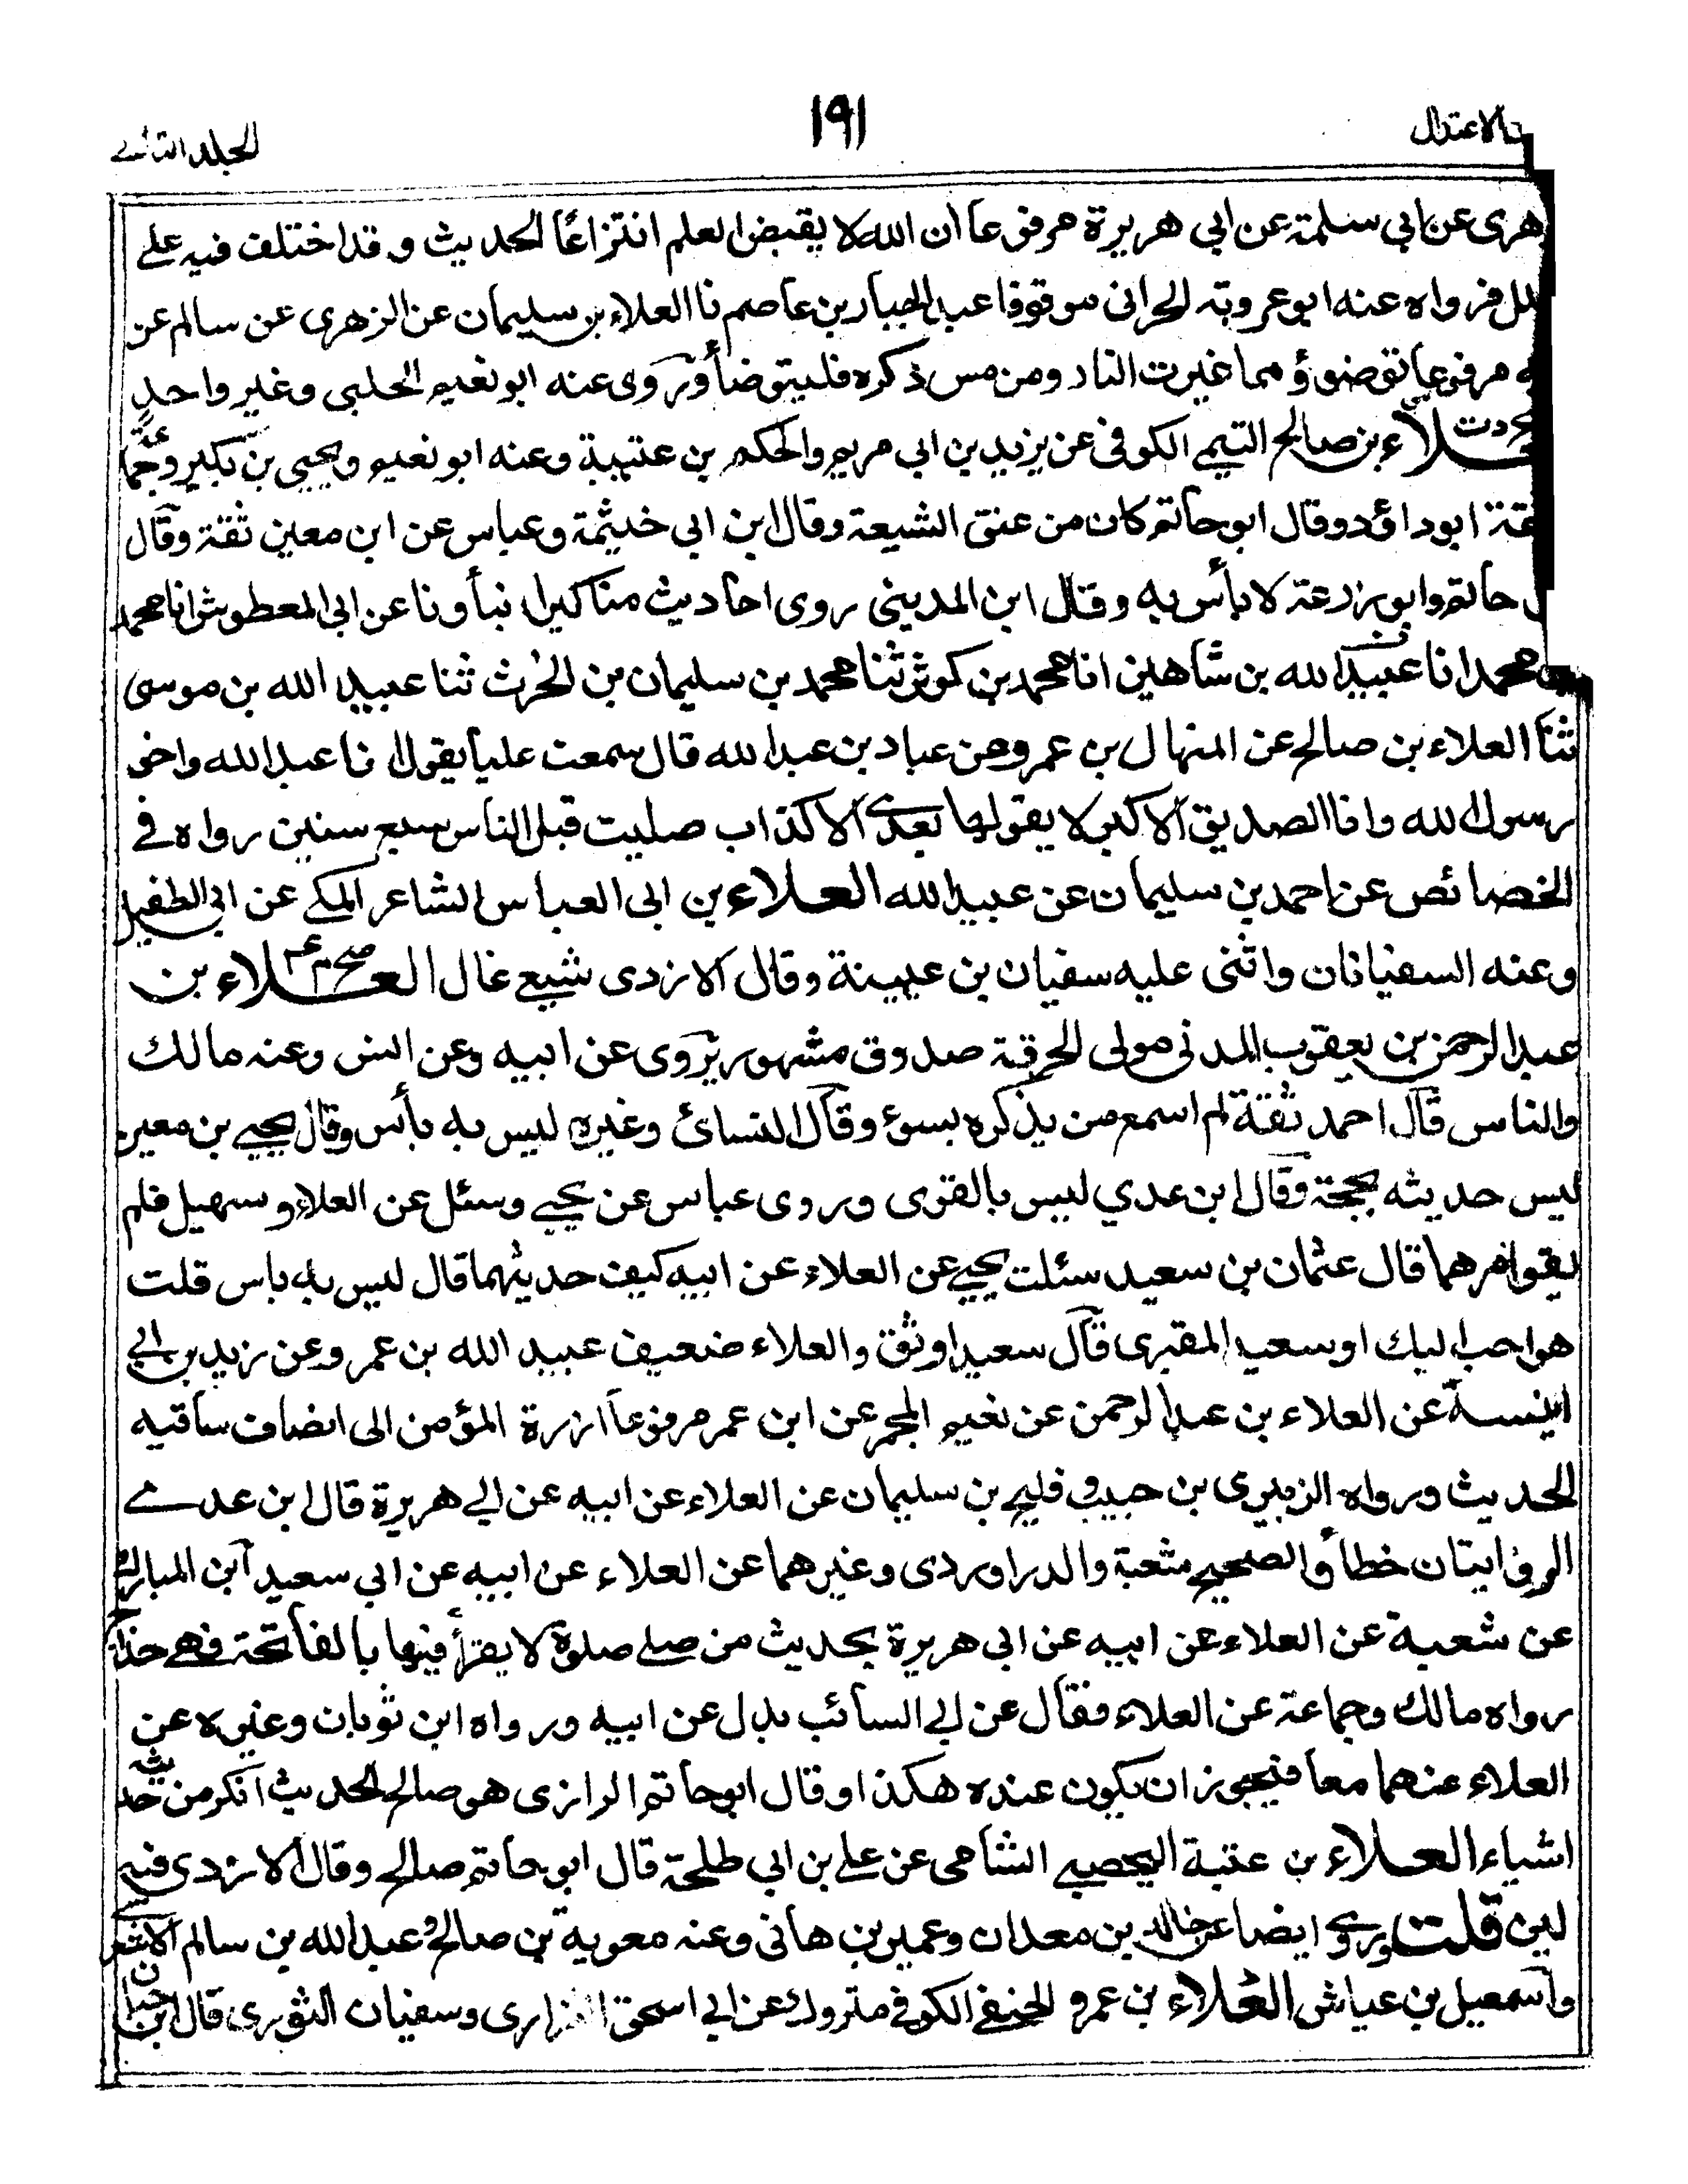 الاعتدال
١٩١
المجلد الثانے
هرى عن ابي سلمة عن ابي هريرة مرفوعا ان الله لا يقبض العلم انتزاعًا الحديث وقد اختلف فيه على
فرواه عنه ابو عروبة الحراني موقوفا عبد الجبار بن عاصم نا العلاء بن سليمان عن الزهرى عن سالم عن
مرفوعا توضوؤ مما غيرت النار ومن مس ذكره فليتوضأ وروى عنه ابو نعيم الحلبي وغير واحد
لاء بن صالح التيمي الكوفي عن يزيد بن ابي مريم والحكم بن عتيبة وعنه ابو نعيم ويحيى بن بكير وجما عة
ابو داؤد وقال ابو حاتم كان من عنق الشيعة وقال ابن ابي خيثمة وعباس عن ابن معين ثقة وقال
حاتم وابو زرعة لا بأس به وقال ابن المدينى روى احاديث مناكير انبأونا عن ابي المعطوش انا محمد
محمد انا عبيد الله بن شاهين انا محمد بن كوثر ثنا محمد بن سليمان بن الحرث ثنا عبيد الله بن موسى
ثنا العلاء بن صالح عن المنهال بن عمرو عن عباد بن عبد الله قال سمعت عليا يقول انا عبد الله واخو
رسول الله وانا الصديق الاكبر لا يقولها بعدى الا كذاب صليت قبل الناس سبع سنين رواه في
الخصائص عن احمد بن سليمان عن عبيد الله العلاء بن ابى العباس الشاعر المكے عن ابي الطفيل
وعنه السفيانان واثنى عليه سفيان بن عيينة وقال الازدى شيع غال العلاء بن صح م عم
عبد الرحمن بن يعقوب المدني مولى الحرقة صدوق مشهور يروى عن ابيه وعن انس وعنه مالك
والناس قال احمد ثقة لم اسمع من يذكره بسوء وقال النسائ وغيره ليس به بأس وقال يحيے بن معين
ليس حديثه بحجة وقال ابن عدي ليس بالقوى وروى عباس عن يحيے وسئل عن العلاء وسهيل فلم
يقو امرهما قال عثمان بن سعيد سئلت يحيے عن العلاء عن ابيه كيف حديثهما قال ليس به باس قلت
هو احب اليك او سعيد المقبرى قال سعيد اوثق والعلاء ضعيف عبيد الله بن عمرو عن زيد بن ابي
انيسة عن العلاء بن عبد الرحمن عن نعيم المجمر عن ابن عمر مرفوعا ازرة المؤمن الى انصاف ساقيه
الحديث ورواه الزبيرى بن حبيب وفليح بن سليمان عن العلاء عن ابيه عن ابي هريرة قال ابن عدے
الروايتان خطأ والصحيح شعبة والدراوردى وغيرهما عن العلاء عن ابيه عن ابي سعيد ابن المبارك
عن شعبة عن العلاء عن ابيه عن ابي هريرة بحديث من صلے صلوة لا يقرأ فيها بالفاتحة فهي خداج
رواه مالك وجماعة عن العلاء فقال عن ابي السائب بدل عن ابيه ورواه ابن ثوبان وغيره عن
العلاء عنهما معا فيجوز ان يكون عنده هكذا وقال ابو حاتم الرازى هو صالح الحديث انكر من حديثه
اشياء العلاء بن عتبة اليحصبے الشامى عن علے بن ابي طلحة قال ابو حاتم صالح وقال الازدى فيه
لين قلت وروى ايضا عن خالد بن معدان وعمير بن هاني وعنه معوية بن صالح وعبد الله بن سالم الاشعرے
واسمعيل بن عياش العلاء بن عمرو الحنفے الكوفے متروك عن ابي اسحق الفزارى وسفيان الثورى قال ابن حبان